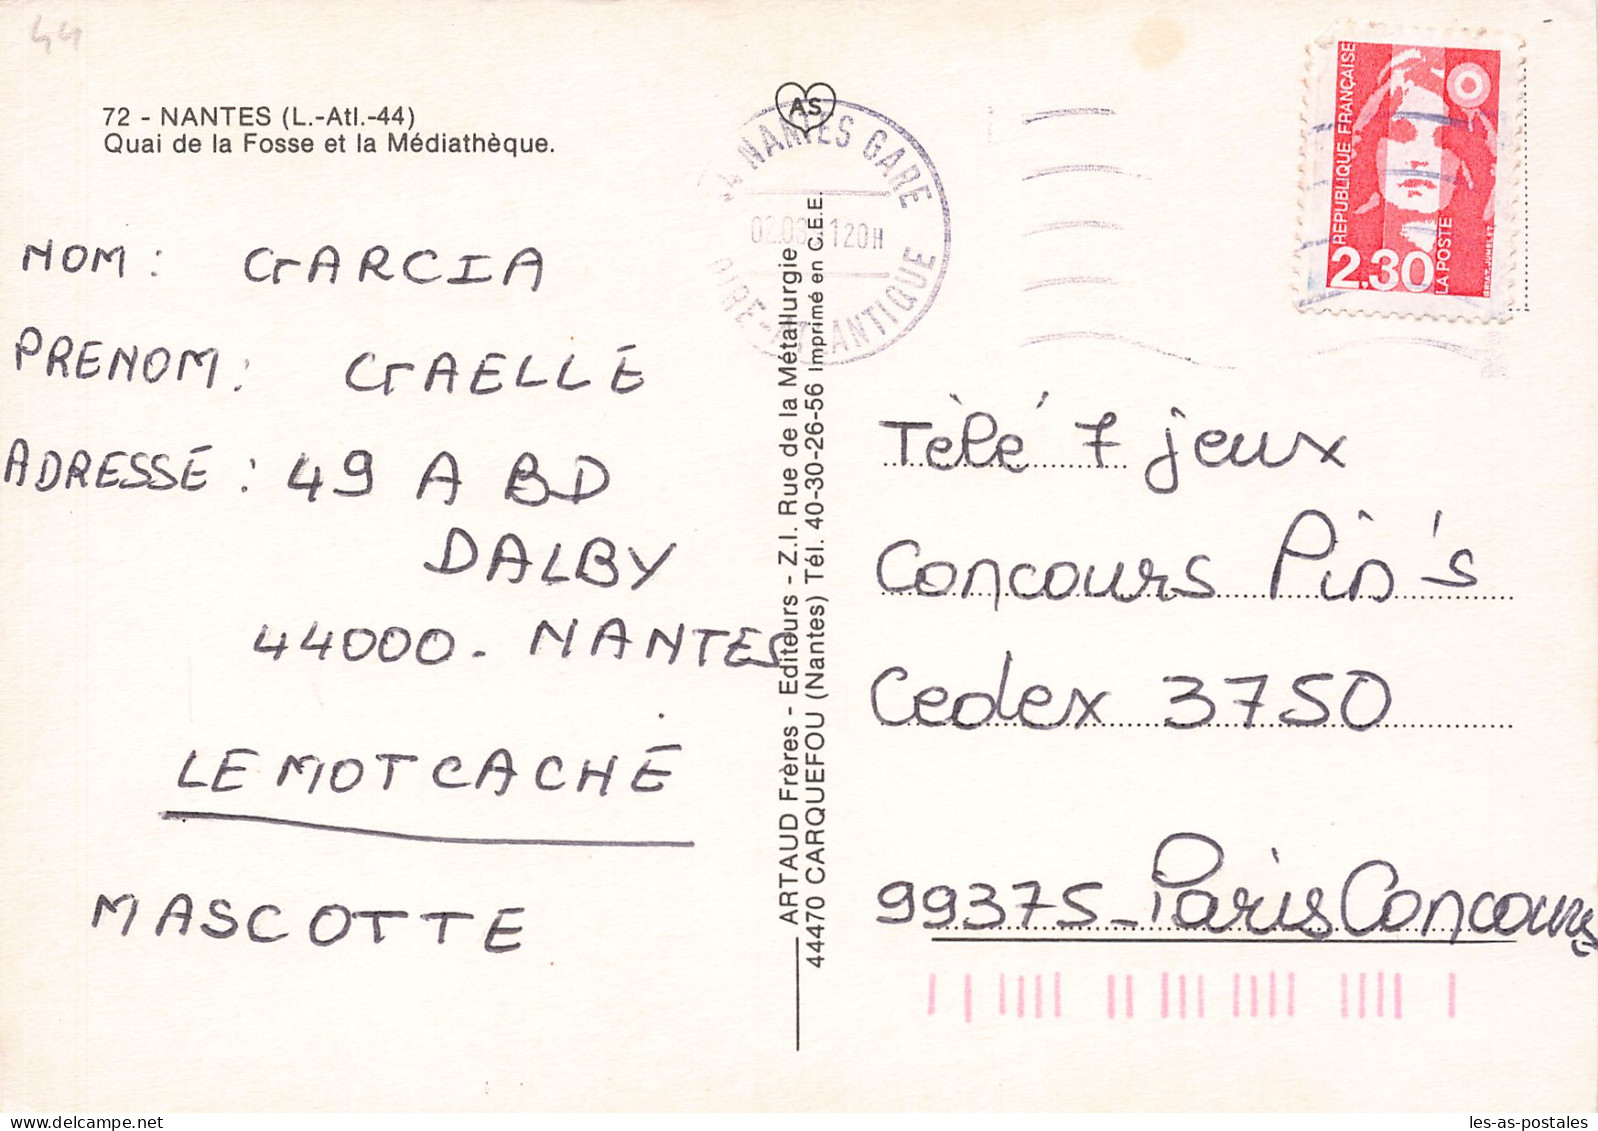 44
72 - NANTES (L.-Atl.-44)
Quai de la Fosse et la Médiathèque.
NOM : GARCIA
PRENOM : GAELLE
ADRESSE : 49 A BD
DALBY
44000 - NANTES
LE MOT CACHÉ
MASCOTTE
AS
ARTAUD Frères - Editeurs - Z.I. Rue de la Métallurgie
44470 CARQUEFOU (Nantes) Tél. 40-30-26-56 Imprimé en C.E.E.
NANTES GARE
120H
ATLANTIQUE
REPUBLIQUE FRANÇAISE
2.30
LA POSTE
BRIAT-JUMELET
Tèlé 7 jeux
Concours Pin's
Cedex 3750
99375 - Paris Concours
les-as-postales